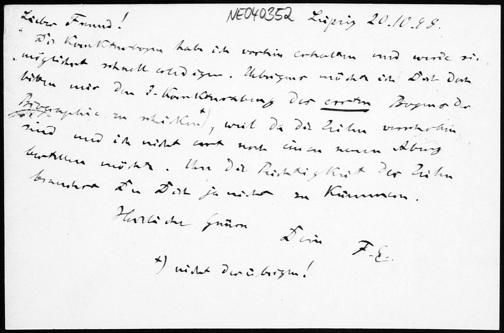 NE040352
Leipzig 20.10.98.
Lieber Freund!
Die Korrekturbogen hab ich vorhin erhalten und werde sie
möglichst schnell erledigen. Uebrigens möchte ich Dich doch
bitten mir den 2. Korrekturabzug des ersten Bogens der
Biographie zu schicken *), weil da die Zeilen verschoben
sind und ich nicht erst noch einen neuen Abzug
bestellen möchte. Um die Richtigkeit der Zeilen
brauchst Du Dich ja nicht zu kümmern.
Herzliche Grüsse
Dein F. E.
*) nicht der übrigen!